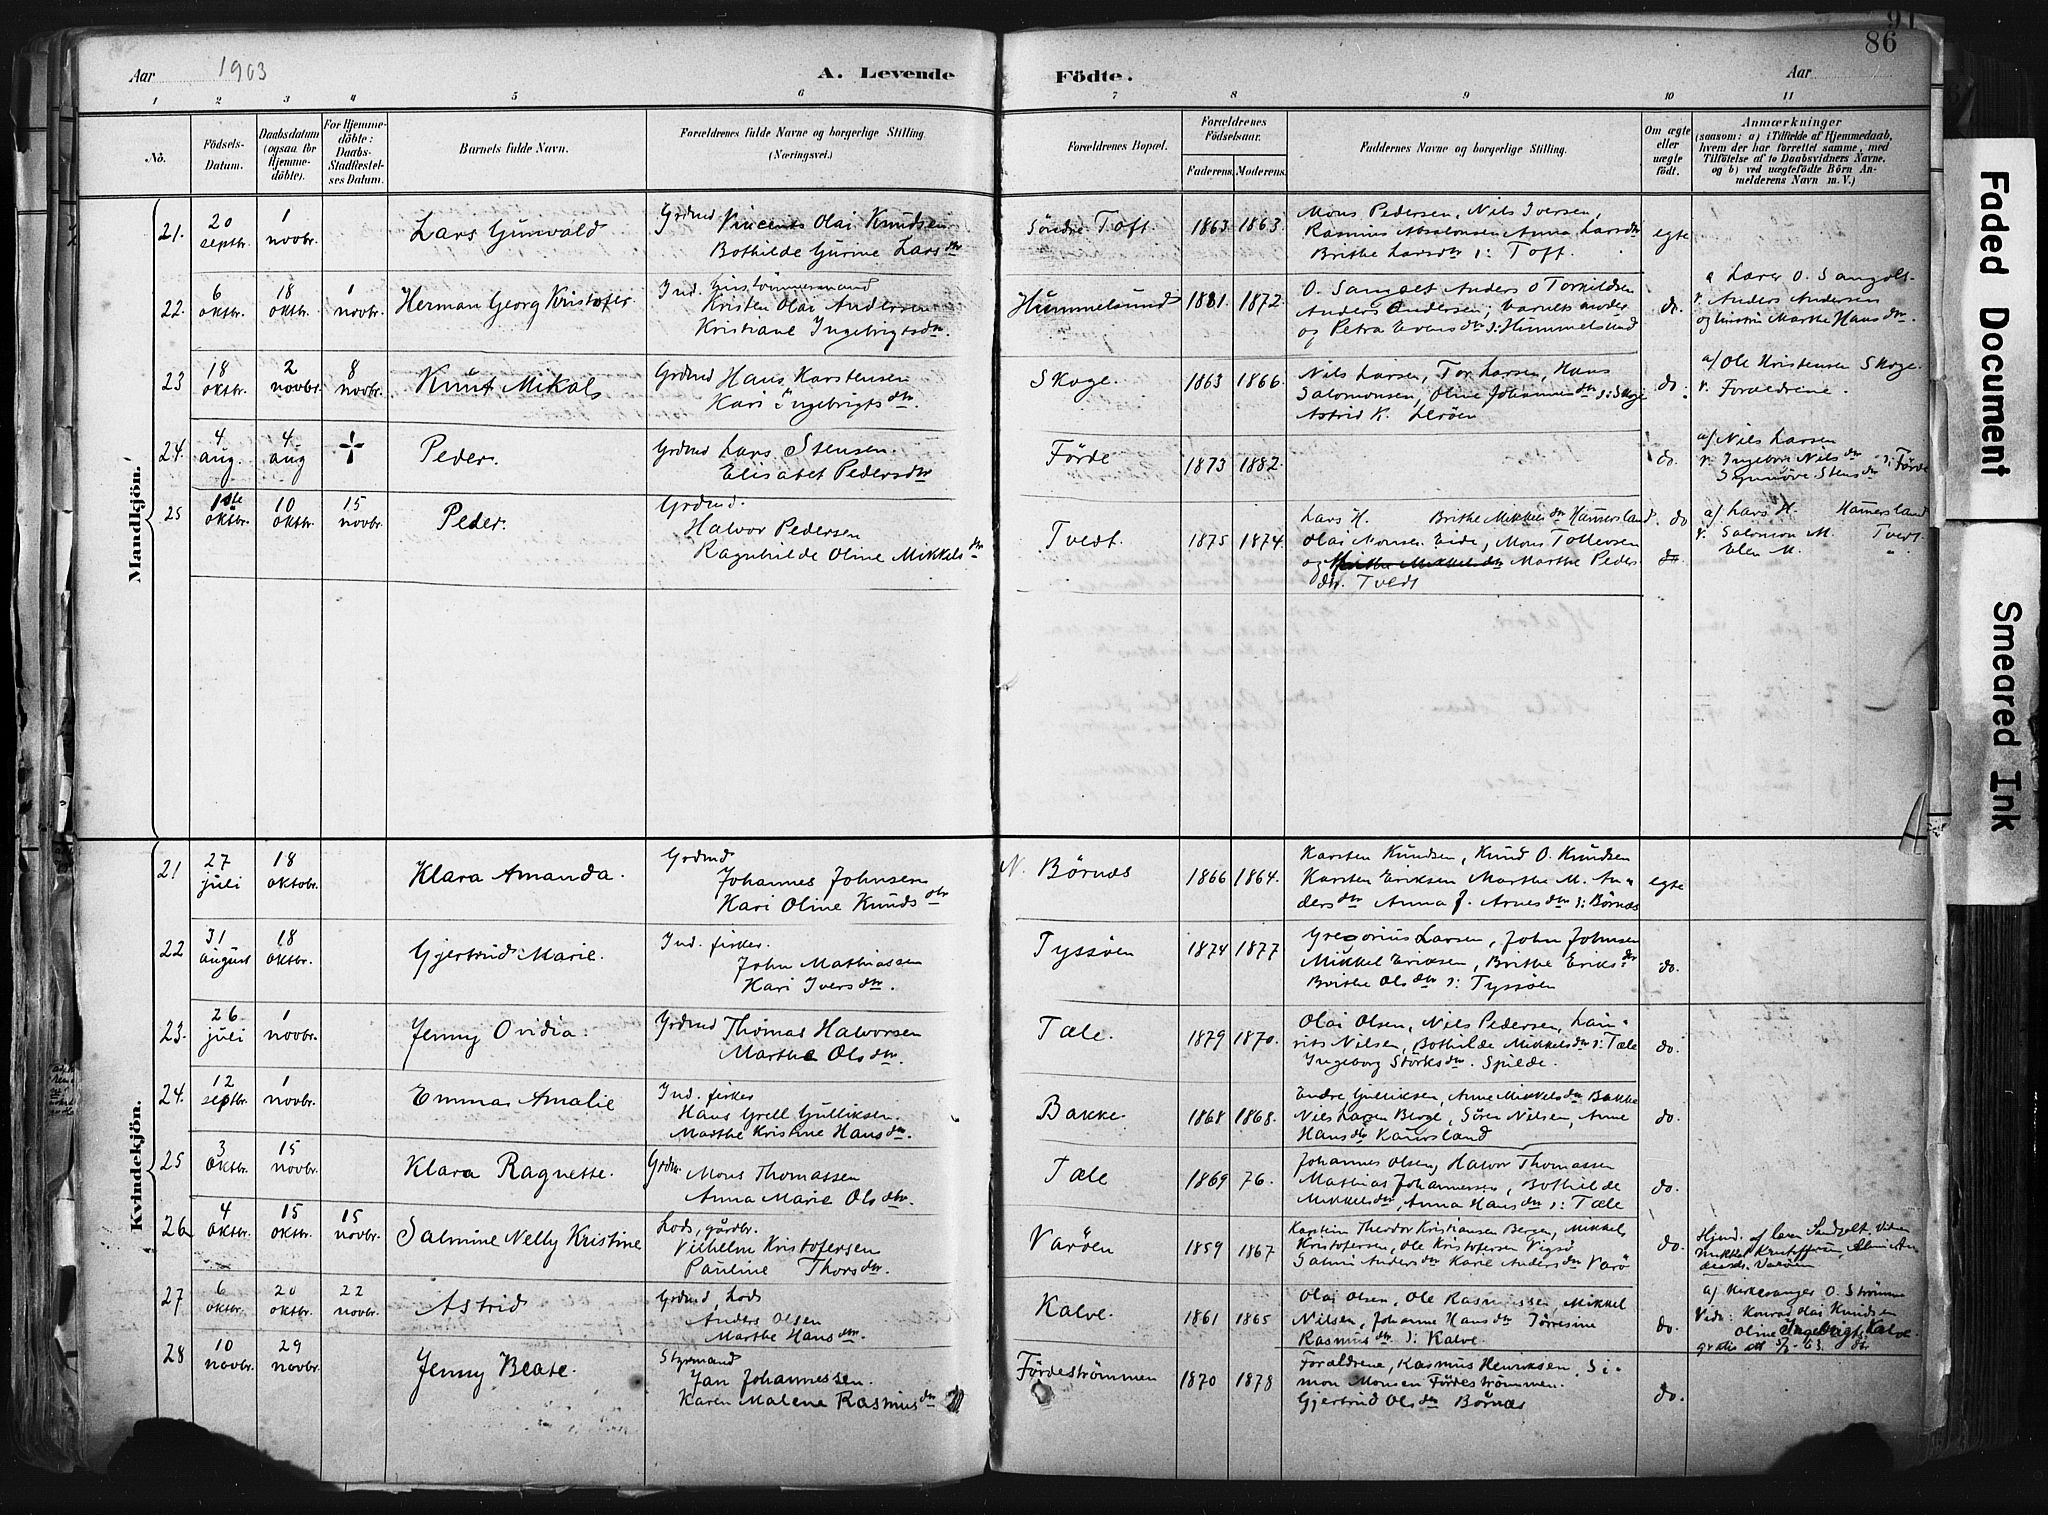 91
86
Aar 1903
A. Levende Födte.
Aar
1 2 3 4 5 6 7 8 9 10 11
No.
Födsels-Datum.
Daabsdatum (ogsaa for Hjemmedöbte).
For Hjemmedöbte: Daabs-Stadfestelses Datum.
Barnets fulde Navn.
Forældrenes fulde Navne og borgerlige Stilling. (Næringsvei.)
Forældrenes Bopæl.
Forældrenes Födselsaar.
Faderens. Moderens.
Faddernes Navne og borgerlige Stilling.
Om ægte eller uægte födt.
Anmærkninger
(saasom: a) i Tilfælde af Hjemmedaab, hvem der har forrettet samme, med Tilföielse af to Daabsvidners Navne, og b) ved uægtefödte Börn Anmelderens Navn m. V.)
Mandkjön.
21. 20 septbr. 1 novbr. Lars Gunvald
Grdmd Vincents Olai Knudsen
Bothilde Gurine Larsdtr
Söndre Toft. 1863 1863.
Mons Pedersen, Nils Iversen,
Rasmus Absalonsen Anna Larsdtr
Brithe Larsdtr s: Toft.
egte
22. 6 oktbr. 18 oktbr. 1 novbr. Herman Georg Kristofer.
Ind. hustömmermand
Kristen Olai Andersen
Kristiane Ingebrigtsdtr.
Hummelsund 1881 1872.
O. Sangolt Anders O Torkildsen
Anders Andersen, barnets moder
og Petra Evensdtr s: Hummelsund
do.
a Lærer O. Sangolt
v. Anders Andersen
og Marthe Hansdtr.
23 18 oktbr. 2 novbr. 8 novbr. Knut Mikal
Grdmd Hans Karstensen
Kari Ingebrigtsdtr.
Skoge. 1863 1866.
Nils Larsen, Tor Larsen, Hans
Salomonsen, Oline Johannesdtr s: Skoge
Astrid K. Leröen
do.
a/ Ole Kristensen Skoge.
v. Forældrene.
24. 4 aug. 4 aug Peder.
Grdmd Lars Stensen.
Elisabet Pedersdtr
Förde 1873 1882.
do.
a/ Nils Larsen
v. Ingebor Nilsdtr s: Förde
Synnöve Stensdtr
25 1ste oktbr. 10 oktbr. 15 novbr. Peder.
Grdmd.
Halvor Pedersen
Ragnhilde Oline Mikkelsdtr
Tvedt. 1875 1874.
Lars H. Brithe Mikkelsdtr Hamersland.
Olai Monsen Eide, Mons Tollevsen
og Marthe Peders
dtr. Tvedt
do
do.
a/ Lars H. Hamersland
v. Salomon M. Tvedt
Elen M. "
Kvindekjön.
21 27 juli 18 oktobr. Klara Amanda.
Grdmd
Johannes Johnsen
Kari Oline Knudsdtr
N. Börnes 1866 1864.
Karsten Knudsen, Knud O. Knudsen
Karsten Eriksen Marthe M. An-
dersdtr Anna J. Arnesdtr s: Börnæs
egte
22 31 august 18 oktbr. Gjertrud Marie.
Ind. fisker.
John Mathiassen
Kari Iversdtr.
Tyssöen 1874 1877
Gregorius Larsen, John Johnsen
Mikkel Eriksen, Brithe Eriksdtr
Brithe Olsdtr s: Tyssöen
do.
23. 26 juli 1 novbr. Jenny Ovidia.
Grdmd Thomas Halvorsen
Marthe Olsdtr.
Tæle. 1879 1870.
Olai Olsen, Nils Pedersen, Lau-
rits Nilsen, Bothilde Mikkelsdtr s: Tæle
Ingeborg Störksdtr. Spilde.
do.
24. 12 septbr. 1 novbr. Emma Amalie
Ind. fisker
Hans Grell Gulliksen.
Marthe Kristine Hansdtr.
Bakke. 1868 1868.
Endre Gulliksen, Anne Mikkelsdtr Bakke
Nils Larsen Berge, Sören Nilsen, Anne
Hansdtr Kaursland
do.
25 3 oktbr. 15 novbr. Klara Ragnette.
Grdm. Mons Thomassen
Anna Marie Olsdtr.
Tæle 1869 76.
Johannes Olsen, Halvor Thomassen
Mathias Johannessen, Bothilde
Mikkelsdtr, Anna Hansdtr s: Tæle
do.
26 4 oktbr. 15 oktbr. 15 novbr. Salmine Nelly Kristine
Lods, gårdbr.
Vilhelm Kristofersen
Pauline Thorsdtr.
Varöen 1859 1867
Karstein Theodor Kristiansen Bergen, Mikkel
Kristofersen, Ole Kristofersen Vigsö
Salmi Andersdtr Karie Andersdtr Varö
do.
Hjmd. af lærer Sandvolt. Vidner
Mikkel Kristoffersen, Almie An-
dersd. Varöen
27 6 oktbr. 20 oktbr. 22 novbr. Astrid
Grdmd, Lods
Anders Olsen
Marthe Hansdtr.
Kalve. 1861 1865
Olai Olsen, Ole Rasmussen, Mikkel
Nilsen, Johanne Hansdtr Torresine
Rasmusdtr s: Kalve.
do.
a) Kirkesanger O. Strömme
Vidn: Konrad Olai Knudsen
Oline Ingebrigts Kalve
dtr
28 10 novbr. 29 novbr. Jenny Beate.
Styrmand
Jan Johannessen.
Karen Malene Rasmusdtr
Fördeströmmen 1870 1878
Forældrene, Rasmus Henriksen, Si-
mon Monsen Fördeströmmen.
Gjertrud Olsdtr Börnæs
do.
Faded Document
Smeared Ink